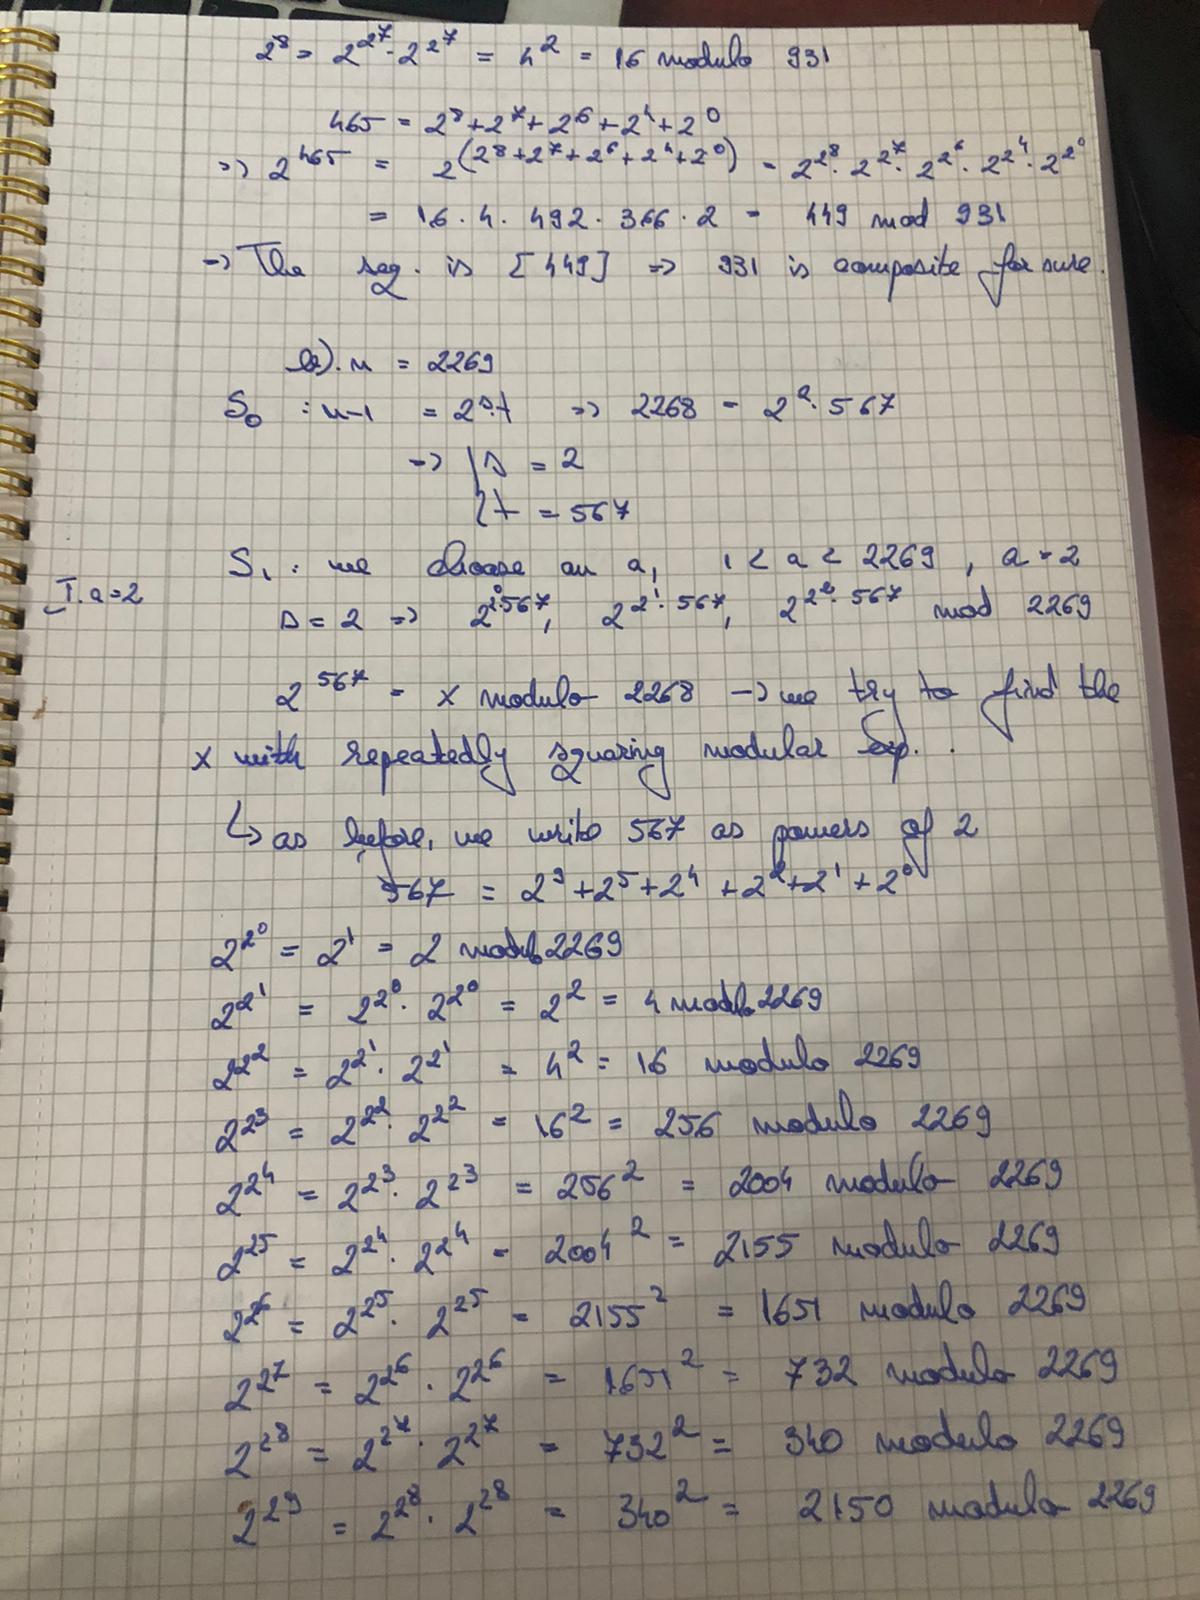 2^8 = 2^2^7 · 2^2^7 = 4^2 = 16 modulo 931
465 = 2^8+2^7+2^6+2^4+2^0
=> 2^465 = 2^(2^8+2^7+2^6+2^4+2^0) = 2^2^8 · 2^2^7 · 2^2^6 · 2^2^4 · 2^2^0
= 16 · 4 · 492 · 366 · 2 = 449 mod 931
-> The seq. is [449] => 931 is composite for sure.
b). n = 2269
S0 : n-1 = 2^s·t => 2268 = 2^2 · 567
-> { s = 2
{ t = 567
S1 : we choose an a, 1 < a < 2269, a = 2
I. a=2
s = 2 => 2^2^0·567, 2^2^1·567, 2^2^2·567 mod 2269
2^567 = x modulo 2268 -> we try to find the
x with repeatedly squaring modular exp..
↳ as before, we write 567 as powers of 2
567 = 2^9+2^5+2^4+2^2+2^1+2^0
2^2^0 = 2^1 = 2 modulo 2269
2^2^1 = 2^2^0 · 2^2^0 = 2^2 = 4 modulo 2269
2^2^2 = 2^2^1 · 2^2^1 = 4^2 = 16 modulo 2269
2^2^3 = 2^2^2 · 2^2^2 = 16^2 = 256 modulo 2269
2^2^4 = 2^2^3 · 2^2^3 = 256^2 = 2004 modulo 2269
2^2^5 = 2^2^4 · 2^2^4 = 2004^2 = 2155 modulo 2269
2^2^6 = 2^2^5 · 2^2^5 = 2155^2 = 1651 modulo 2269
2^2^7 = 2^2^6 · 2^2^6 = 1651^2 = 732 modulo 2269
2^2^8 = 2^2^7 · 2^2^7 = 732^2 = 340 modulo 2269
2^2^9 = 2^2^8 · 2^2^8 = 340^2 = 2150 modulo 2269